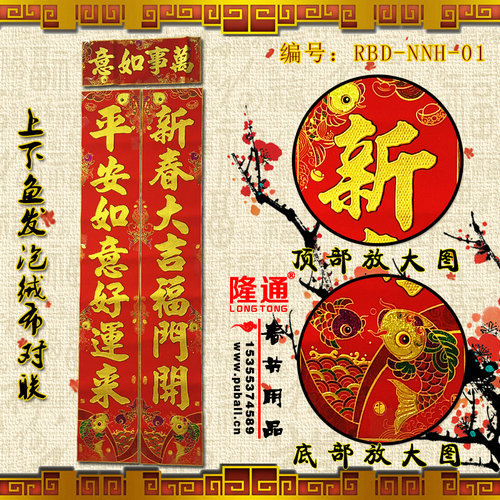 编号：RBD-NNH-01
萬事如意
新春大吉福門開
平安如意好運来
上下鱼发泡绒布对联
新
顶部放大图
隆通®
LONGTONG
春节用品
15355374589
www.puball.cn
底部放大图